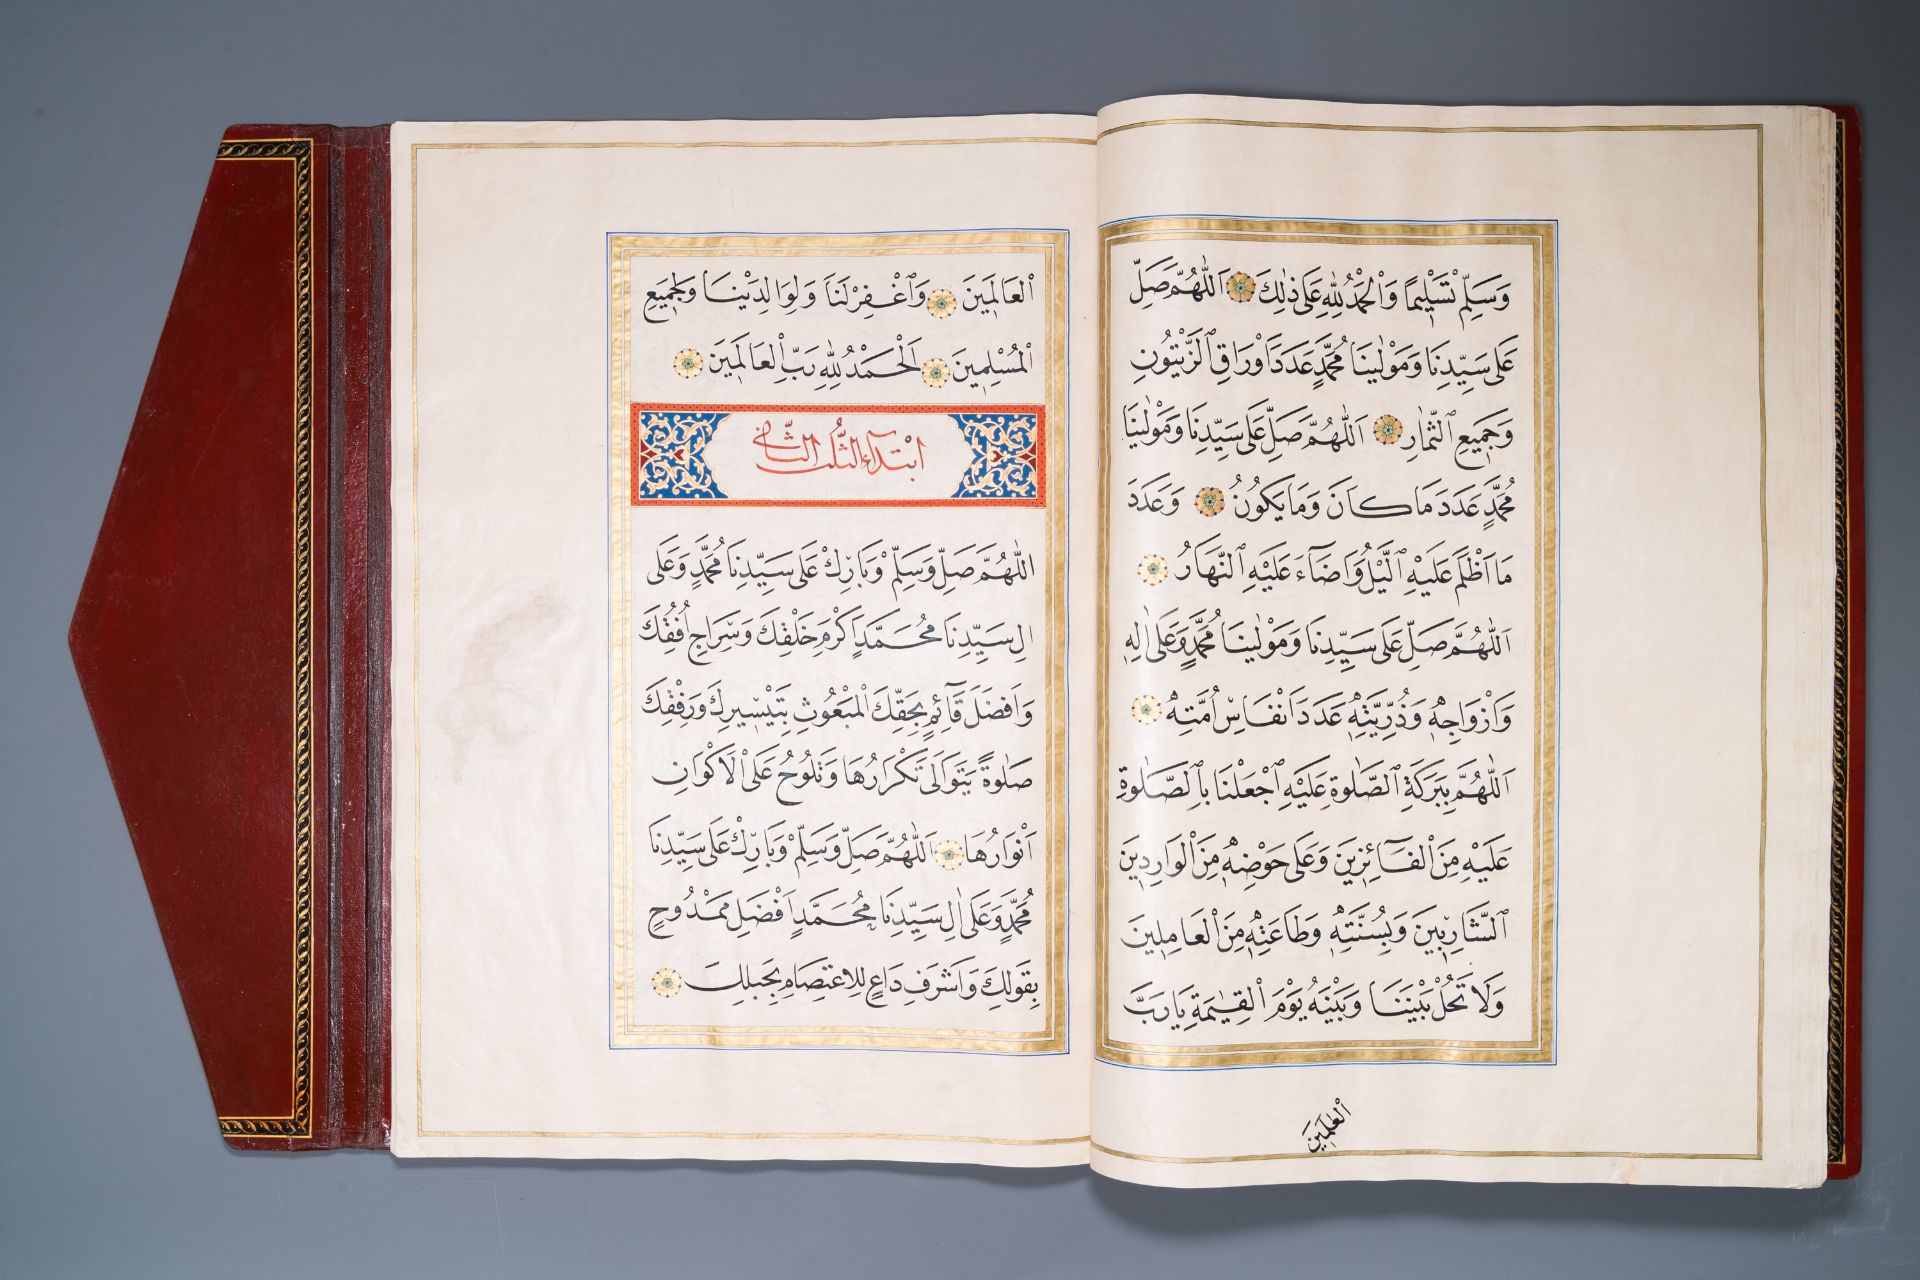 وَسَلِّمْ تَسْلِيمًا وَالْحَمْدُ لِلّٰهِ عَلٰى ذٰلِكَ اَللّٰهُمَّ صَلِّ
عَلٰى سَيِّدِنَا وَمَوْلٰينَا مُحَمَّدٍ عَدَدَ اَوْرَاقِ ٱلزَّيْتُونِ
وَجَمِيعِ ٱلثِّمَارِ اَللّٰهُمَّ صَلِّ عَلٰى سَيِّدِنَا وَمَوْلٰينَا
مُحَمَّدٍ عَدَدَ مَا كَانَ وَمَا يَكُونُ وَعَدَدَ
مَا اَظْلَمَ عَلَيْهِ ٱلَّيْلُ وَاَضَآءَ عَلَيْهِ ٱلنَّهَارُ
اَللّٰهُمَّ صَلِّ عَلٰى سَيِّدِنَا وَمَوْلٰينَا مُحَمَّدٍ وَعَلٰى اٰلِهٖ
وَاَزْوَاجِهٖ وَذُرِّيَّتِهٖ عَدَدَ اَنْفَاسِ اُمَّتِهٖ
اَللّٰهُمَّ بِبَرَكَةِ ٱلصَّلٰوةِ عَلَيْهِ ٱجْعَلْنَا بِالصَّلٰوةِ
عَلَيْهِ مِنَ ٱلْفَآئِزِينَ وَعَلٰى حَوْضِهٖ مِنَ ٱلْوَارِدِينَ
ٱلشَّارِبِينَ وَبِسُنَّتِهٖ وَطَاعَتِهٖ مِنَ ٱلْعَامِلِينَ
وَلَا تَحُلْ بَيْنَنَا وَبَيْنَهُ يَوْمَ ٱلْقِيٰمَةِ يَا رَبَّ
ٱلْعٰلَمِينَ
ٱلْعَالَمِينَ وَٱغْفِرْ لَنَا وَلِوَالِدَيْنَا وَلِجَمِيعِ
ٱلْمُسْلِمِينَ اَلْحَمْدُ لِلّٰهِ رَبِّ ٱلْعَالَمِينَ
ابْتِدَآءُ الثُّلُثِ الثَّانِي
اَللّٰهُمَّ صَلِّ وَسَلِّمْ وَبَارِكْ عَلٰى سَيِّدِنَا مُحَمَّدٍ وَعَلٰى
اٰلِ سَيِّدِنَا مُحَمَّدٍ اَكْرَمِ خَلْقِكَ وَسِرَاجِ اُفُقِكَ
وَاَفْضَلِ قَآئِمٍ بِحَقِّكَ ٱلْمَبْعُوثِ بِتَيْسِيرِكَ وَرِفْقِكَ
صَلٰوةً يَتَوَالٰى تَكْرَارُهَا وَتَلُوحُ عَلَى ٱلْاَكْوَانِ
اَنْوَارُهَا اَللّٰهُمَّ صَلِّ وَسَلِّمْ وَبَارِكْ عَلٰى سَيِّدِنَا
مُحَمَّدٍ وَعَلٰى اٰلِ سَيِّدِنَا مُحَمَّدٍ اَفْضَلِ مَمْدُوحٍ
بِقَوْلِكَ وَاَشْرَفِ دَاعٍ لِلِاعْتِصَامِ بِحَبْلِكَ